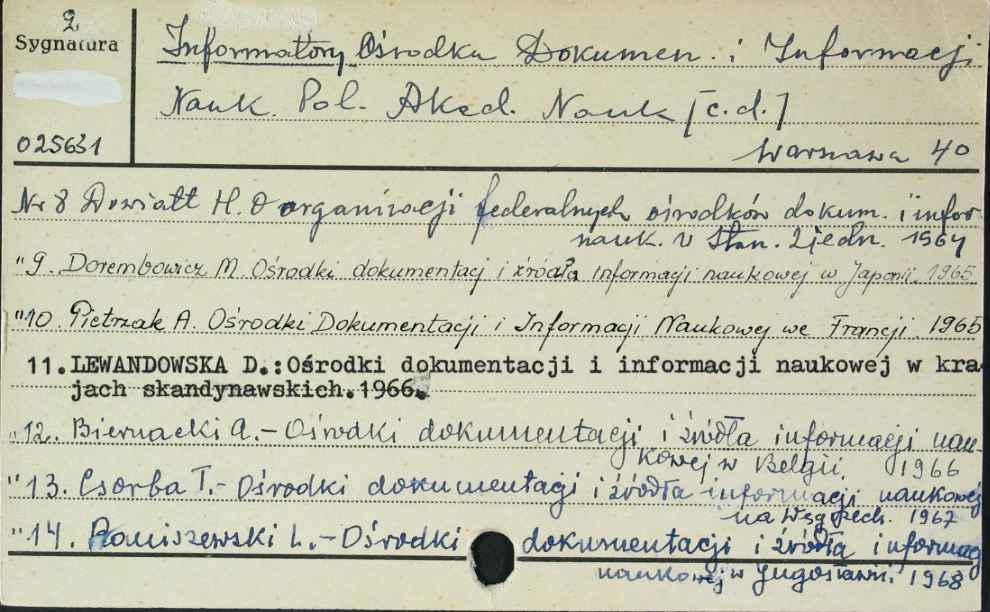 2
Sygnatura
025631
Informatory Ośrodka Dokumen. i Informacji
Nauk. Pol. Akad. Nauk [c.d.]
Warszawa 40
Nr 8 Dowiatt H. O organizacji federalnych ośrodków dokum. i infor-
nauk. w Stan. Zjedn. 1964
"9. Dorembowicz M. Ośrodki dokumentacj i źródła informacji naukowej w Japonii. 1965
"10. Pietrzak A. Ośrodki Dokumentacji i Informacji Naukowej we Francji. 1965
11. LEWANDOWSKA D.: Ośrodki dokumentacji i informacji naukowej w kra
jach skandynawskich. 1966.
"12. Biernacki A. - Ośrodki dokumentacji i źródła informacji nau-
kowej w Belgii. 1966
"13. Csorba T. - Ośrodki dokumentacji i źródła informacji naukowej
na Węgrzech. 1967
"14. L. - Ośrodki dokumentacji i źródła informacj
naukowej w Jugosławii. 1968